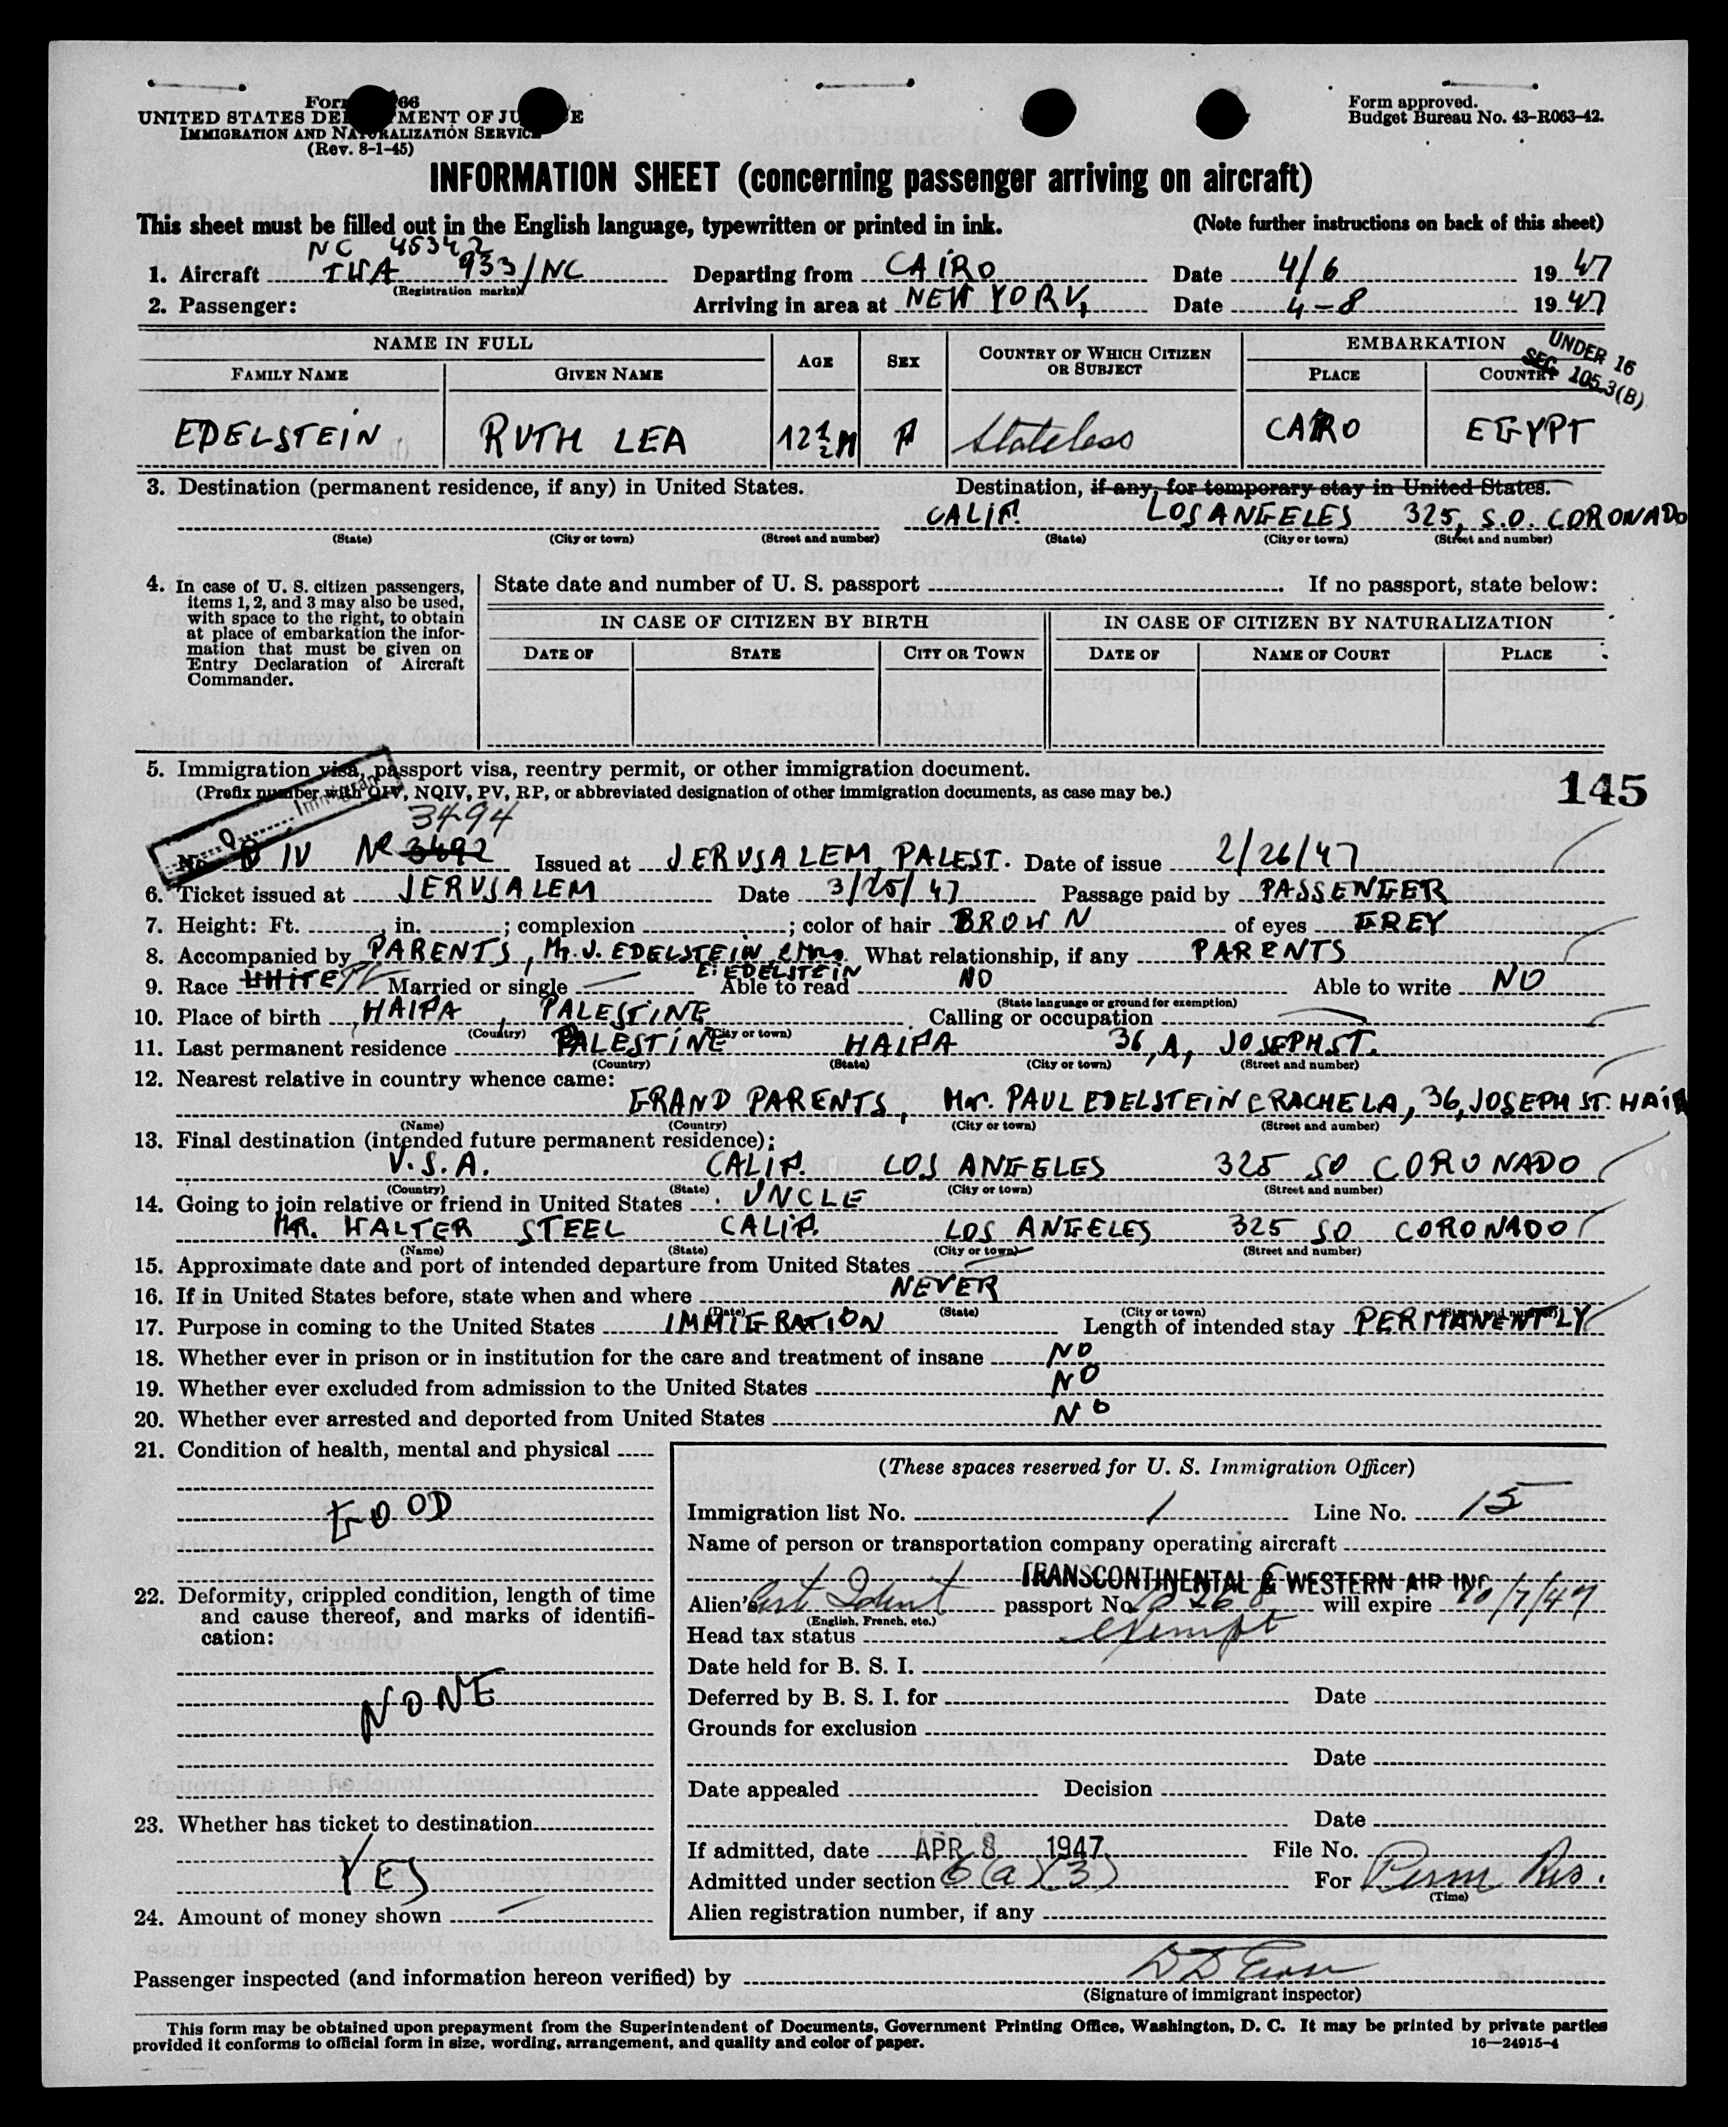 UNITED STATES DE MENT OF JU E
IMMIGRATION AND NATURALIZATION SERVICE
(Rev. 8-1-45)
Form approved.
Budget Bureau No. 43-R063-42.
INFORMATION SHEET (concerning passenger arriving on aircraft)
This sheet must be filled out in the English language, typewritten or printed in ink. (Note further instructions on back of this sheet)
NC 45342
1. Aircraft TWA 933/NC Departing from CAIRO Date 4/6 1947
(Registration marks)
2. Passenger: Arriving in area at NEW YORK, Date 4-8 1947
UNDER 16
SEC. 105.3(B)
NAME IN FULL AGE SEX COUNTRY OF WHICH CITIZEN OR SUBJECT EMBARKATION
FAMILY NAME GIVEN NAME PLACE COUNTRY
EDELSTEIN RUTH LEA 12½ M F Stateless CAIRO EGYPT
3. Destination (permanent residence, if any) in United States. Destination, if any, for temporary stay in United States.
CALIF. LOS ANGELES 325, S.O. CORONADO
(State) (City or town) (Street and number) (State) (City or town) (Street and number)
4. In case of U. S. citizen passengers, items 1, 2, and 3 may also be used, with space to the right, to obtain at place of embarkation the information that must be given on Entry Declaration of Aircraft Commander.
State date and number of U. S. passport If no passport, state below:
IN CASE OF CITIZEN BY BIRTH IN CASE OF CITIZEN BY NATURALIZATION
DATE OF STATE CITY OR TOWN DATE OF NAME OF COURT PLACE
5. Immigration visa, passport visa, reentry permit, or other immigration document.
(Prefix number with QIV, NQIV, PV, RP, or abbreviated designation of other immigration documents, as case may be.)
145
Q Immigrant
3494
No. IV No 3492 Issued at JERUSALEM, PALEST. Date of issue 2/26/47
6. Ticket issued at JERUSALEM Date 3/25/47 Passage paid by PASSENGER
7. Height: Ft. , in. ; complexion ; color of hair BROWN of eyes GREY
8. Accompanied by PARENTS, Mr. J. EDELSTEIN & Mrs. What relationship, if any PARENTS
E. EDELSTEIN
9. Race WHITE Married or single Able to read NO Able to write NO
(State language or ground for exemption)
10. Place of birth HAIFA, PALESTINE Calling or occupation
(Country) (City or town)
11. Last permanent residence PALESTINE HAIFA 36, A, JOSEPH ST.
(Country) (State) (City or town) (Street and number)
12. Nearest relative in country whence came:
GRAND PARENTS, Mr. PAUL EDELSTEIN & RACHELA, 36, JOSEPH ST. HAIFA
(Name) (Country) (City or town) (Street and number)
13. Final destination (intended future permanent residence):
U.S.A. CALIF. LOS ANGELES 325 SO CORONADO
(Country) (State) (City or town) (Street and number)
14. Going to join relative or friend in United States UNCLE
MR. WALTER STEEL CALIF. LOS ANGELES 325 SO CORONADO
(Name) (State) (City or town) (Street and number)
15. Approximate date and port of intended departure from United States
16. If in United States before, state when and where NEVER
(Date) (State) (City or town) (Street and number)
17. Purpose in coming to the United States IMMIGRATION Length of intended stay PERMANENTLY
18. Whether ever in prison or in institution for the care and treatment of insane NO
19. Whether ever excluded from admission to the United States NO
20. Whether ever arrested and deported from United States NO
21. Condition of health, mental and physical
GOOD
22. Deformity, crippled condition, length of time and cause thereof, and marks of identification:
NONE
23. Whether has ticket to destination
YES
24. Amount of money shown
(These spaces reserved for U. S. Immigration Officer)
Immigration list No. 1 Line No. 15
Name of person or transportation company operating aircraft
TRANSCONTINENTAL & WESTERN AIR INC
Alien's Cert Ident passport No. will expire 10/7/47
(English, French, etc.)
Head tax status exempt
Date held for B. S. I.
Deferred by B. S. I. for Date
Grounds for exclusion
Date
Date appealed Decision
Date
If admitted, date APR 8 1947 File No.
Admitted under section 6(a)(3) For Perm Res.
(Time)
Alien registration number, if any
Passenger inspected (and information hereon verified) by
(Signature of immigrant inspector)
This form may be obtained upon prepayment from the Superintendent of Documents, Government Printing Office, Washington, D. C. It may be printed by private parties
provided it conforms to official form in size, wording, arrangement, and quality and color of paper. 16—24915-4